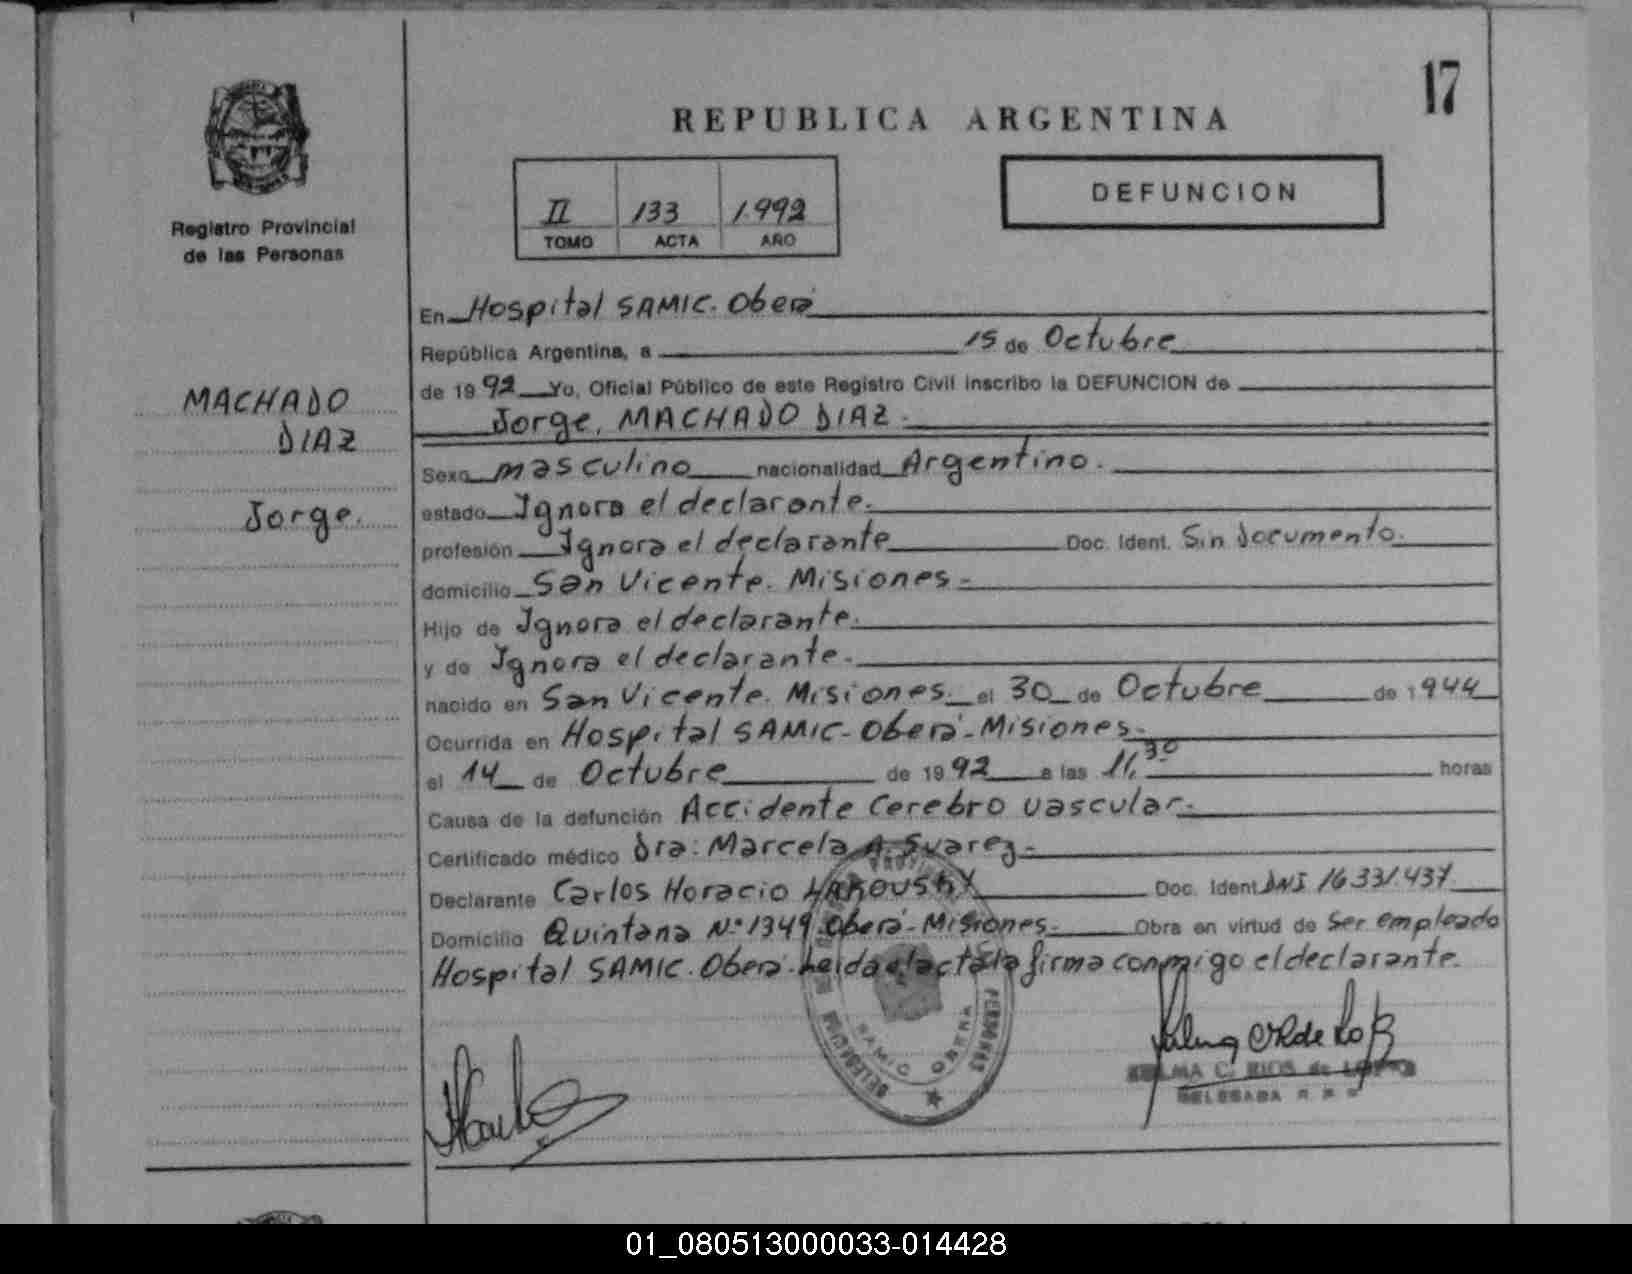 17
REPUBLICA ARGENTINA
Registro Provincial
de las Personas
II 133 1.992
TOMO ACTA AÑO
DEFUNCION
MACHADO
DIAZ
Jorge.
En Hospital SAMIC. Oberá
República Argentina, a 15 de Octubre
de 1992 Yo, Oficial Público de este Registro Civil inscribo la DEFUNCION de
Jorge, MACHADO DIAZ.-
Sexo masculino nacionalidad Argentino.
estado Ignora el declarante.
profesión Ignora el declarante Doc. Ident. Sin documento.
domicilio San Vicente. Misiones.-
Hijo de Ignora el declarante.
y de Ignora el declarante.
nacido en San Vicente. Misiones. el 30 de Octubre de 1944
Ocurrida en Hospital SAMIC- Oberá- Misiones.-
el 14 de Octubre de 1992 a las 11,30 horas
Causa de la defunción Accidente Cerebro vascular.-
Certificado médico Dra: Marcela A. Suarez.-
Declarante Carlos Horacio Doc. Ident. DNI 16.331.437.
Domicilio Quintana N° 1349. Oberá- Misiones.- Obra en virtud de ser empleado
Hospital SAMIC. Oberá. Leida el acta la firma conmigo el declarante.
DELEGACION SAMIC OBERA PERSONAS
C. RIOS de
DELEGADA
01_080513000033-014428